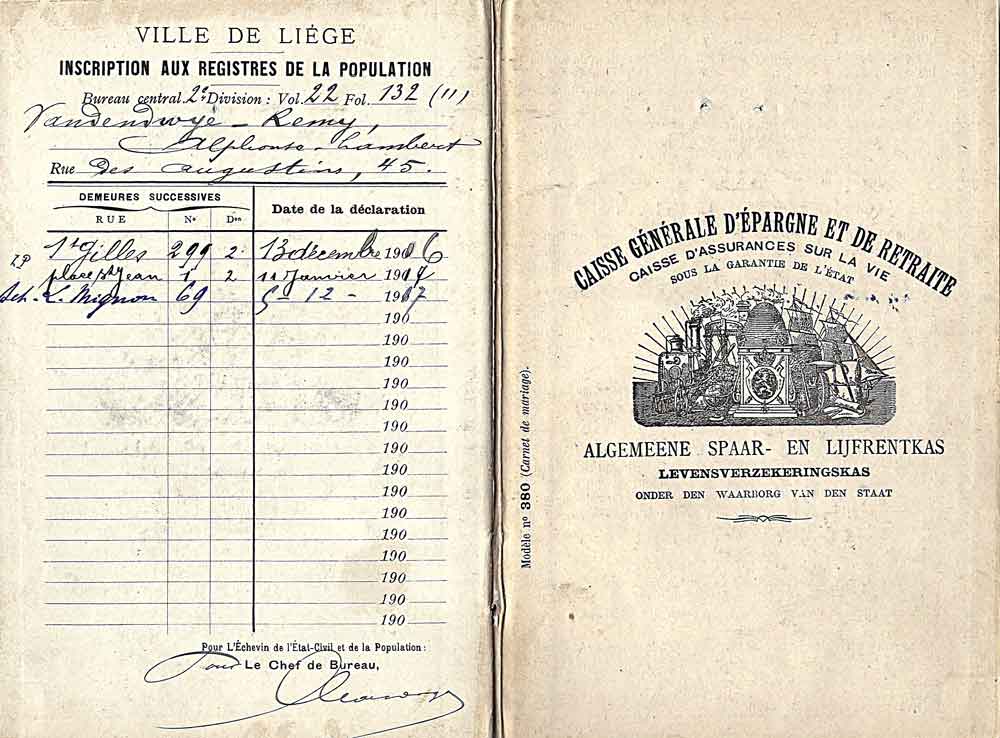 VILLE DE LIÉGE
INSCRIPTION AUX REGISTRES DE LA POPULATION
Bureau central 2e Division : Vol. 22 Fol. 132 (11)
Vandendwye - Remy,
Alphonse - Lambert
Rue des augustins, 45.
DEMEURES SUCCESSIVES
Date de la déclaration
RUE No Don
St Gilles 299 2 13 décembre 1906
place St Jean 1 2 Janvier
L. Mignon 69 5 - 12 -
190
190
190
190
190
190
190
190
190
190
190
190
190
190
190
Pour L'Échevin de l'État-Civil et de la Population :
Pour Le Chef de Bureau,
Modèle no 380 (Carnet de mariage).
CAISSE GÉNÉRALE D'ÉPARGNE ET DE RETRAITE
CAISSE D'ASSURANCES SUR LA VIE
SOUS LA GARANTIE DE L'ÉTAT
ALGEMEENE SPAAR- EN LIJFRENTKAS
LEVENSVERZEKERINGSKAS
ONDER DEN WAARBORG VAN DEN STAAT